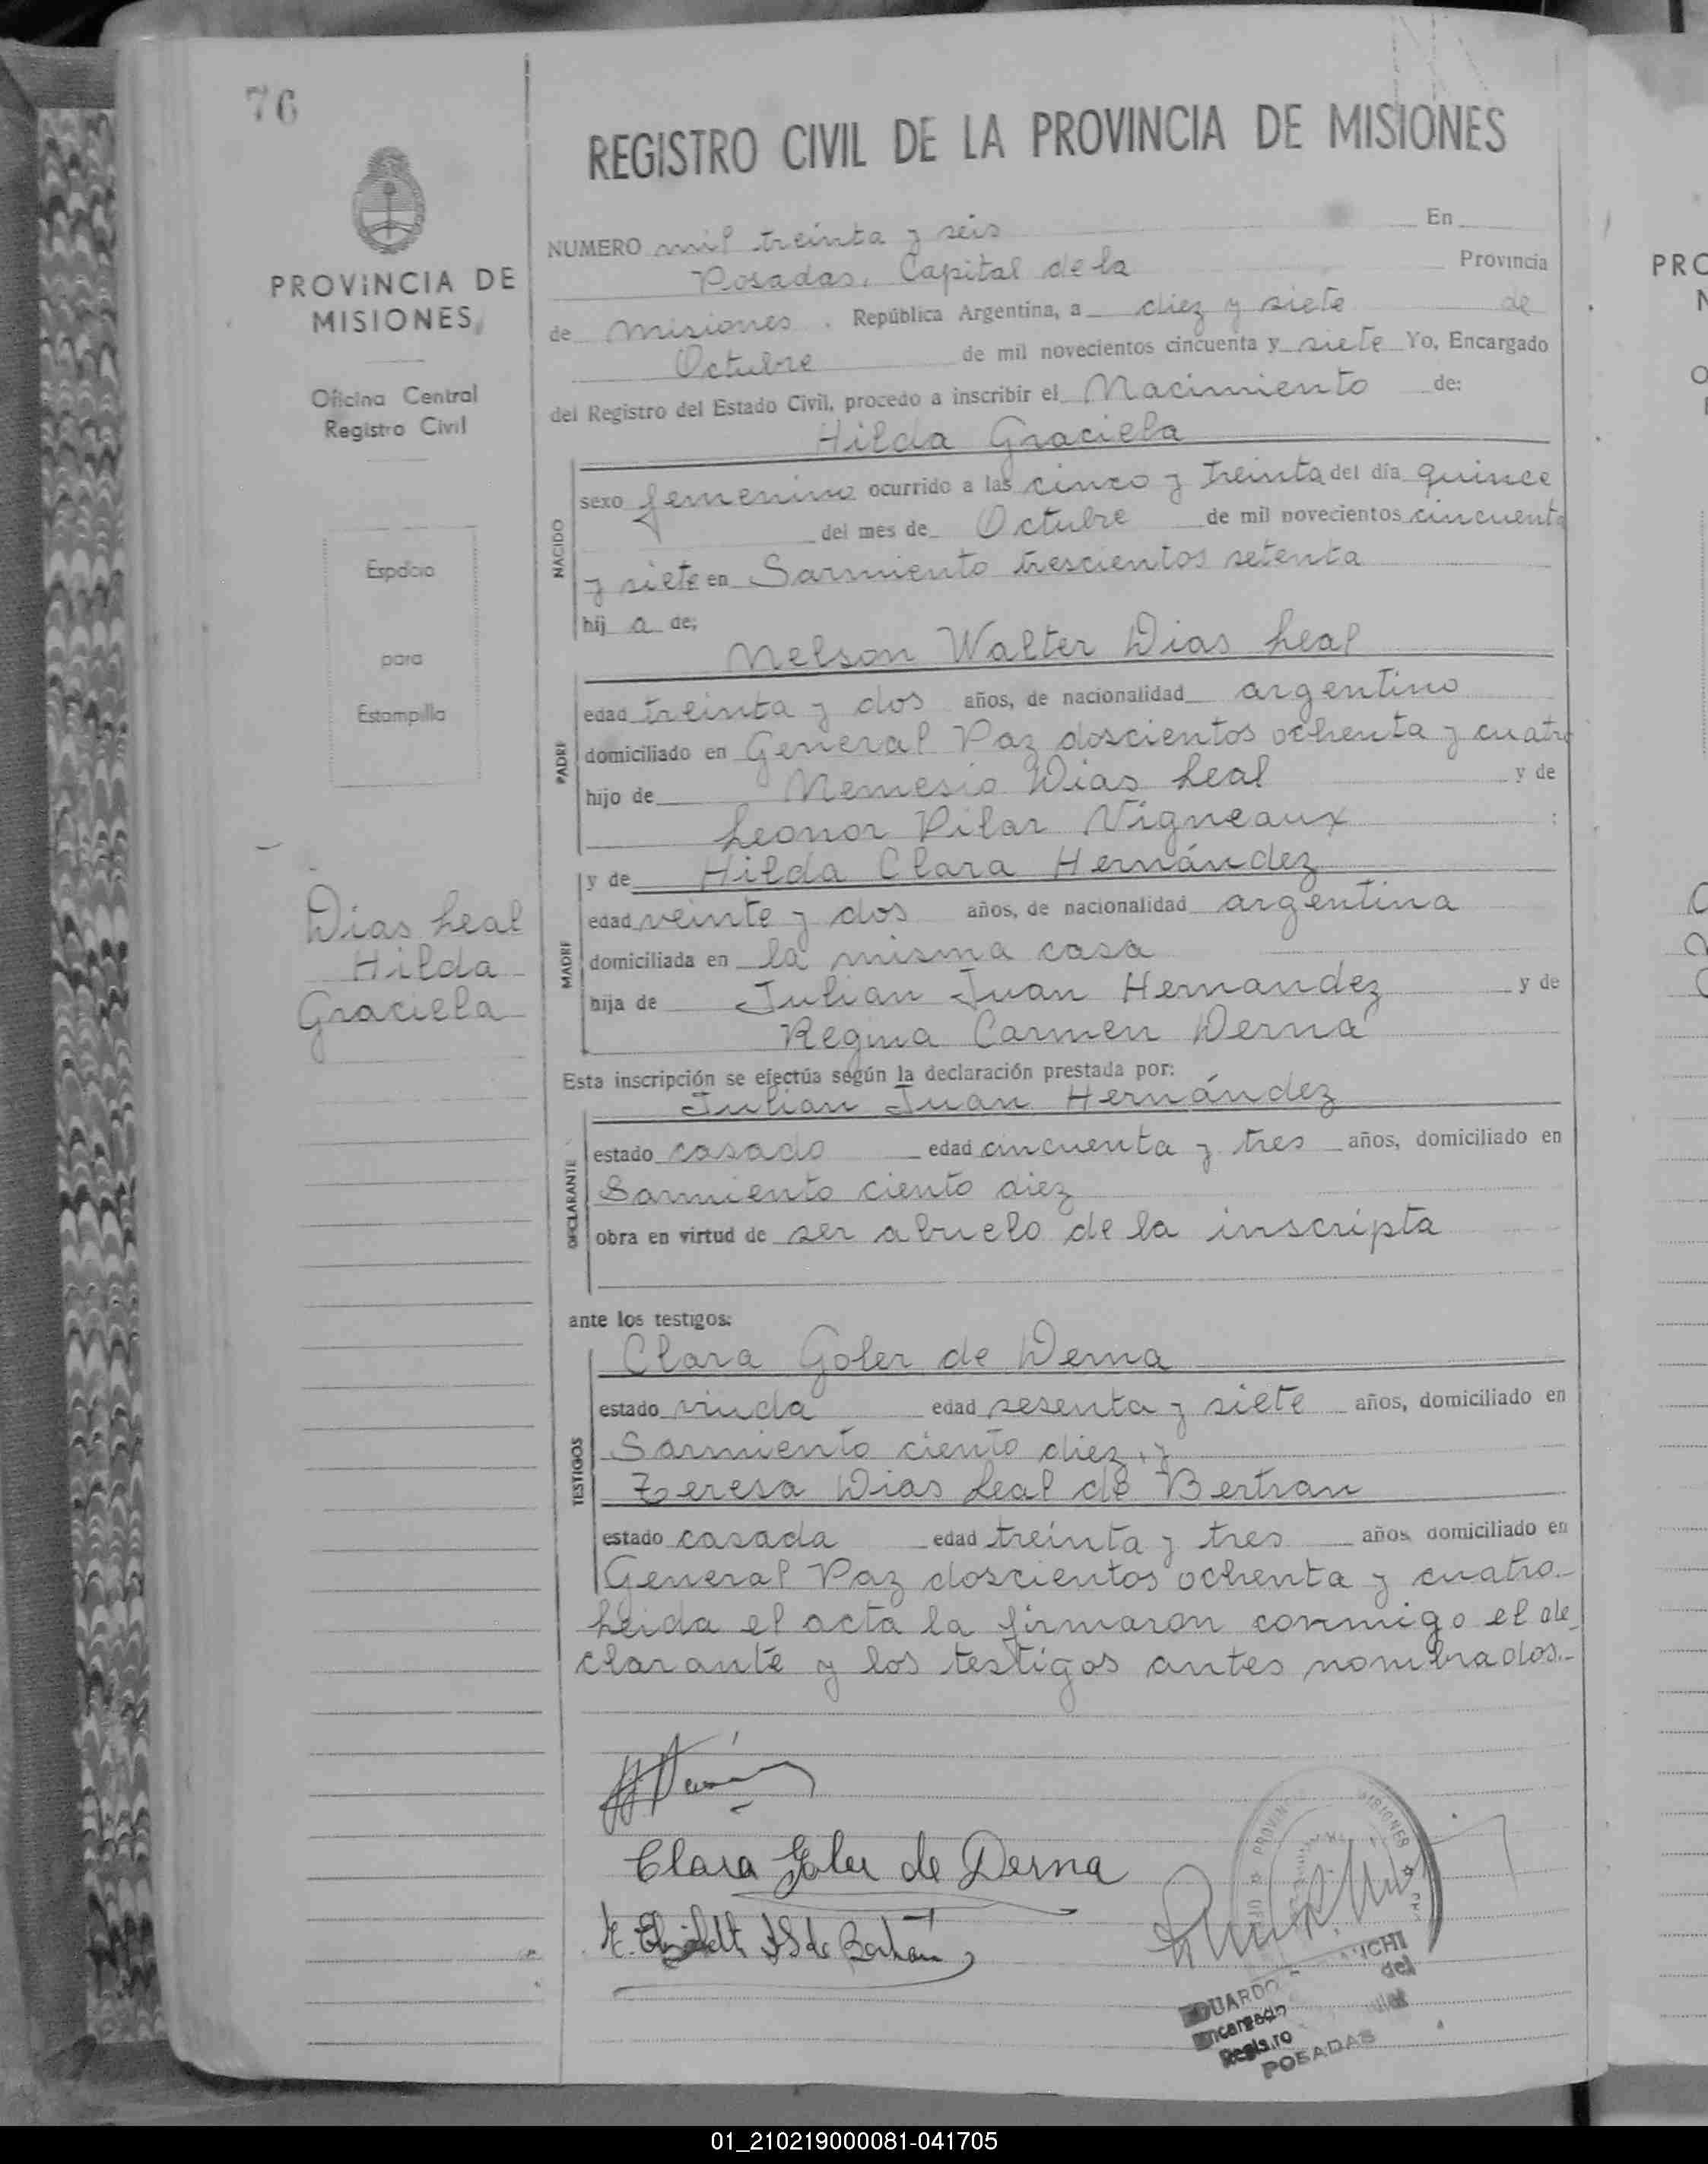 76
PROVINCIA DE
MISIONES
Oficina Central
Registro Civil
Espacio
para
Estampilla
Dias Leal
Hilda
Graciela
REGISTRO CIVIL DE LA PROVINCIA DE MISIONES
NUMERO mil treinta y seis En
Posadas, Capital de la Provincia
de Misiones, República Argentina, a diez y siete de
Octubre de mil novecientos cincuenta y siete Yo, Encargado
del Registro del Estado Civil, procedo a inscribir el Nacimiento de:
Hilda Graciela
NACIDO
sexo femenino ocurrido a las cinco y treinta del día quince
del mes de Octubre de mil novecientos cincuenta
y siete en Sarmiento trescientos setenta
hij a de;
Nelson Walter Dias Leal
PADRE
edad treinta y dos años, de nacionalidad argentino
domiciliado en General Paz doscientos ochenta y cuatro
hijo de Nemesio Dias Leal y de
Leonor Pilar Vigneaux
y de Hilda Clara Hernández
MADRE
edad veinte y dos años, de nacionalidad argentina
domiciliada en la misma casa
hija de Julian Juan Hernandez y de
Regina Carmen Derna
Esta inscripción se efectúa según la declaración prestada por:
Julian Juan Hernández
DECLARANTE
estado casado edad cincuenta y tres años, domiciliado en
Sarmiento ciento diez
obra en virtud de ser abuelo de la inscripta
ante los testigos:
Clara Goler de Derna
TESTIGOS
estado viuda edad sesenta y siete años, domiciliado en
Sarmiento ciento diez, y
Teresa Dias Leal de Bertran
estado casada edad treinta y tres años domiciliado en
General Paz doscientos ochenta y cuatro.-
Leida el acta la firmaron conmigo el de_
clarante y los testigos antes nombrados.-
Clara Goler de Derna
PROVINCIA MISIONES
EDUARDO
Encargado del
Registro
POSADAS
PRO
01_210219000081-041705